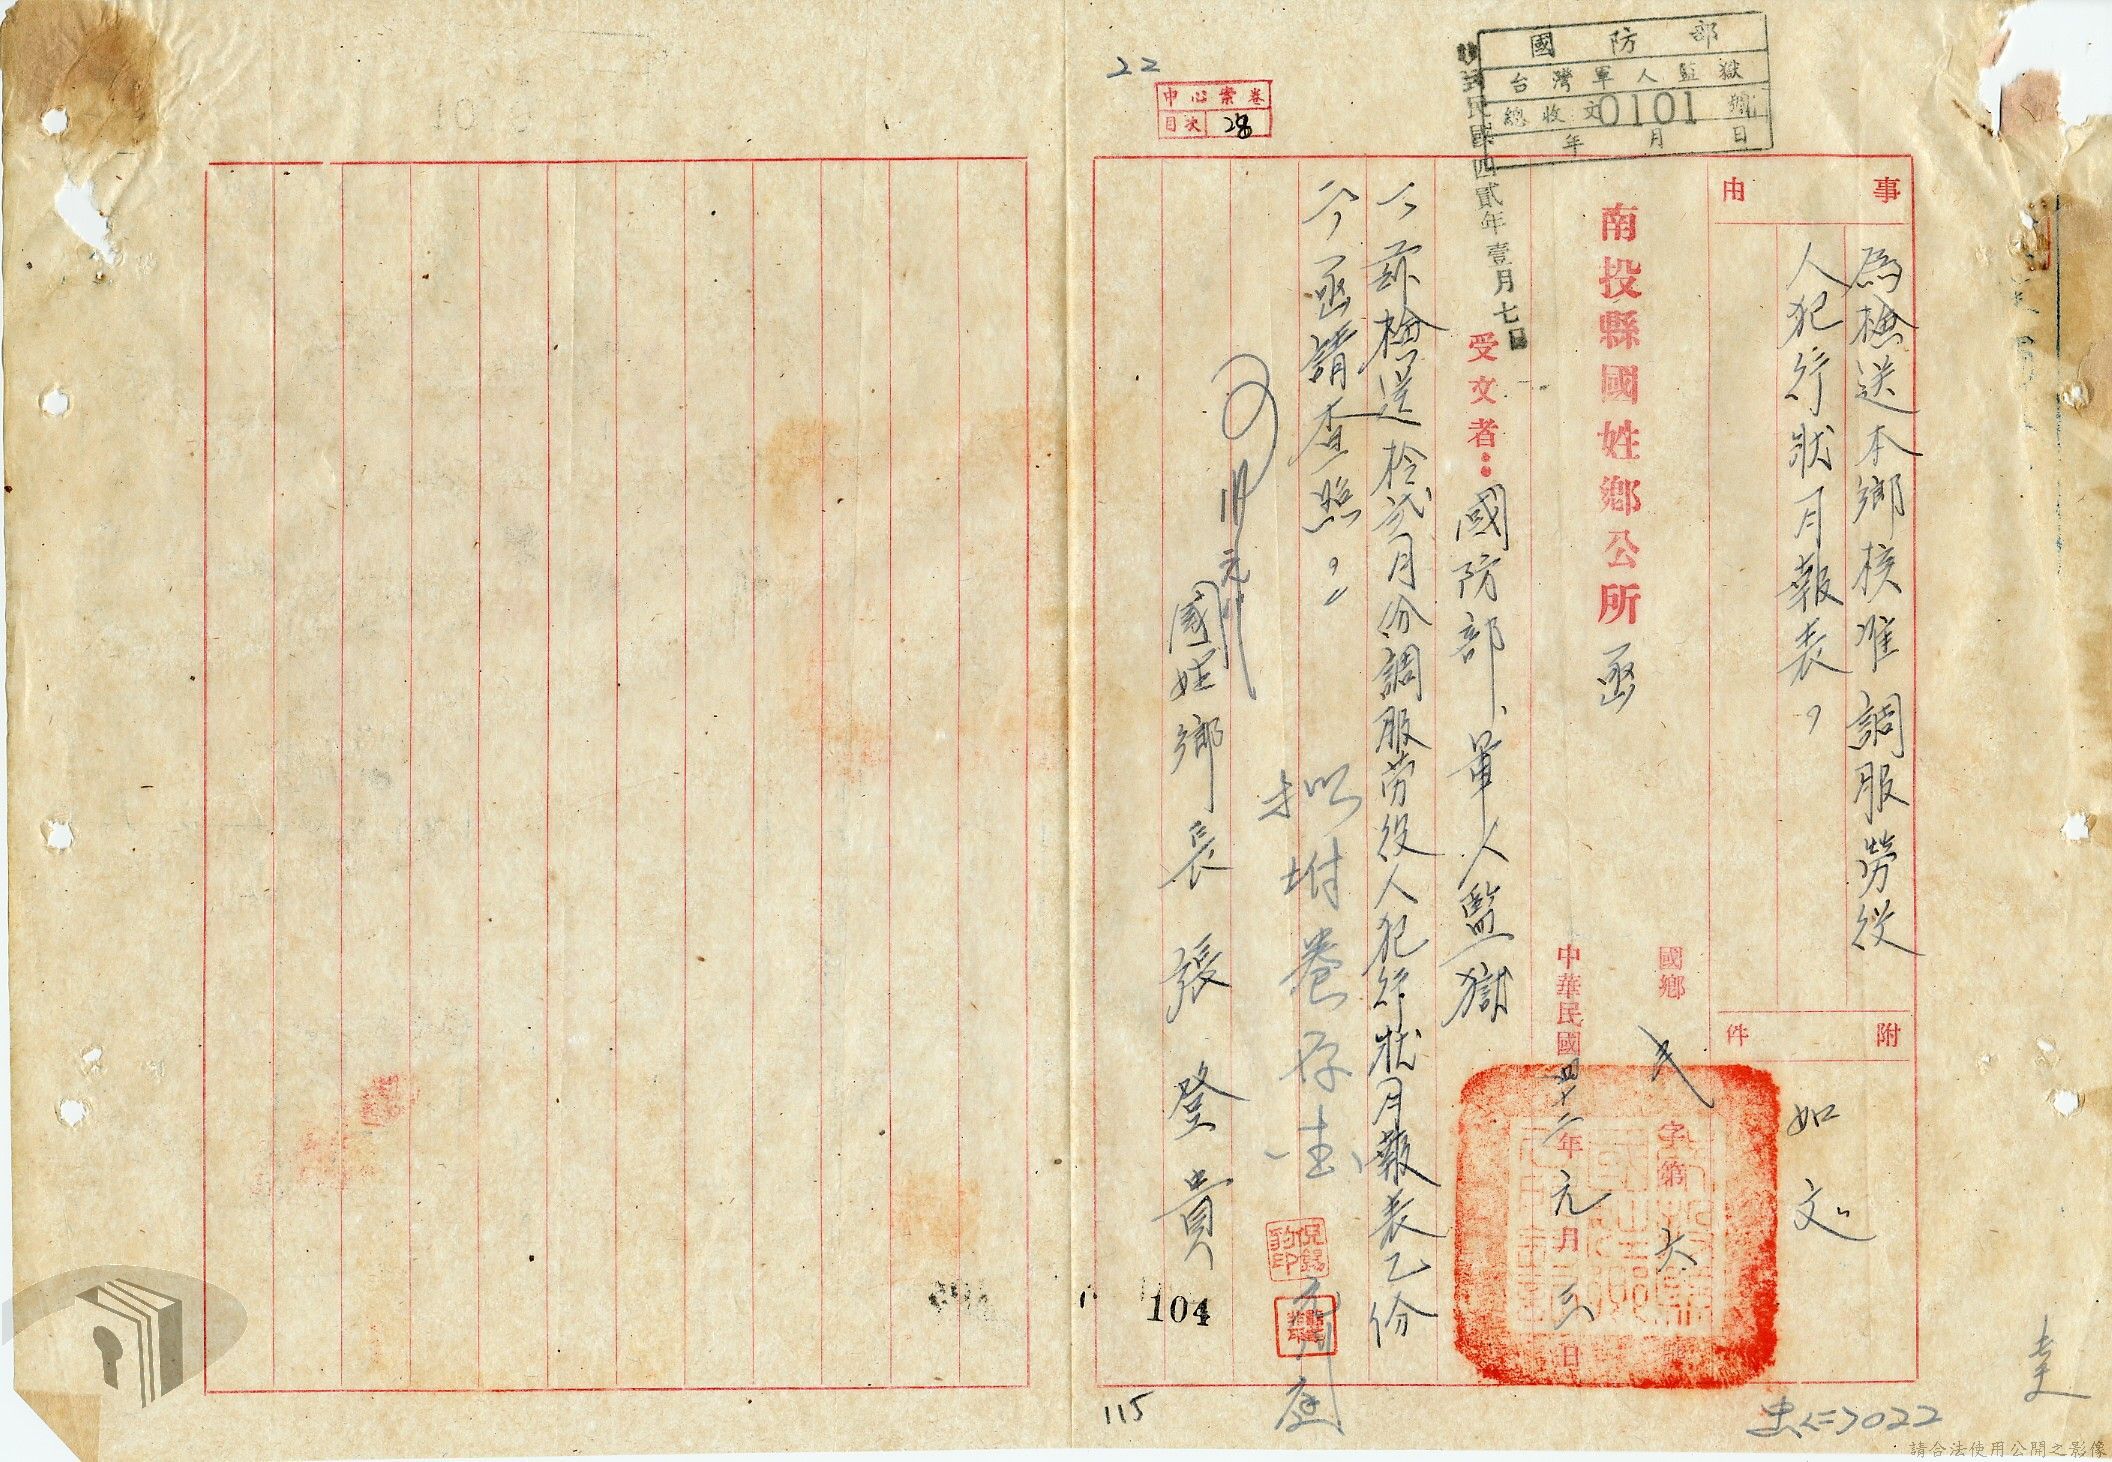 22
中心案卷
目次 28
國防部
台灣軍人監獄
總收文0101號
年 月 日
民國四貳年壹月七日
事由
為檢送本鄉核准調服勞役
人犯行狀月報表,
附件
如文
南投縣國姓鄉公所 函
國鄉 民 字第 六 號
中華民國四十二年元月三日
受文者:國防部、軍人監獄
一、茲檢送拾弍月份調服劳役人犯行狀月報表乙份
二、函請查照。
拟附卷存查
可
國姓鄉長 張登貴
104
115
3022
請合法使用公開之影像